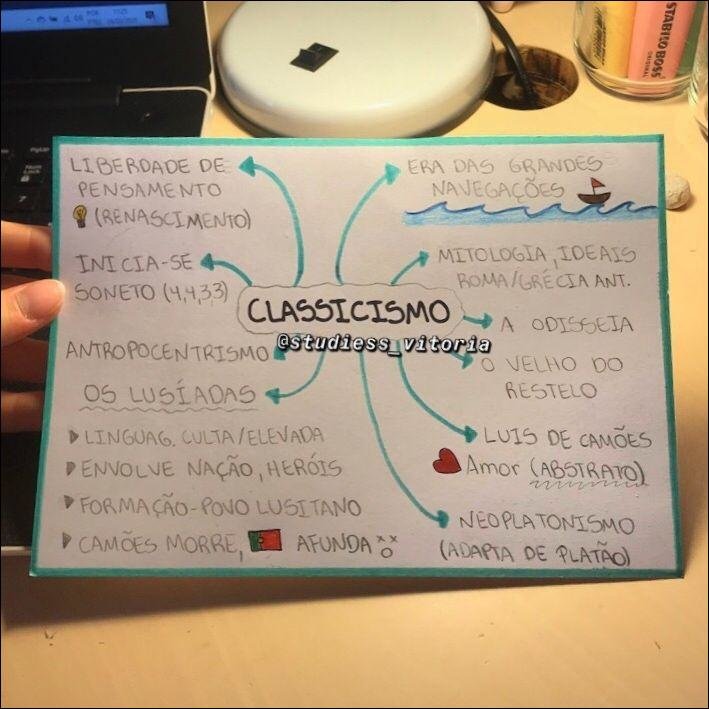 LIBERDADE DE
PENSAMENTO
(RENASCIMENTO)
INICIA-SE
SONETO (4,4,3,3)
ANTROPOCENTRISMO
OS LUSÍADAS
LINGUAG. CULTA/ELEVADA
ENVOLVE NAÇÃO, HERÓIS
FORMAÇÃO-POVO LUSITANO
CAMÕES MORRE, AFUNDA
CLASSICISMO
@studiess_vitoria
ERA DAS GRANDES
NAVEGAÇÕES
MITOLOGIA, IDEAIS
ROMA/GRÉCIA ANT.
A ODISSEIA
O VELHO DO
RESTELO
LUIS DE CAMÕES
Amor (ABSTRATO)
NEOPLATONISMO
(ADAPTA DE PLATÃO)
STABILO BOSS
ORIGINAL